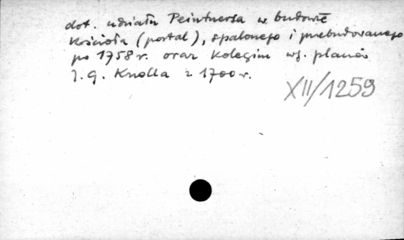 dot. udziału Peintnera w budowie
kościoła (portal), spalonego i przebudowanego
po 1758 r. oraz kolegium wg. planów
J. G. Knolla z 1700 r.
XII/1259